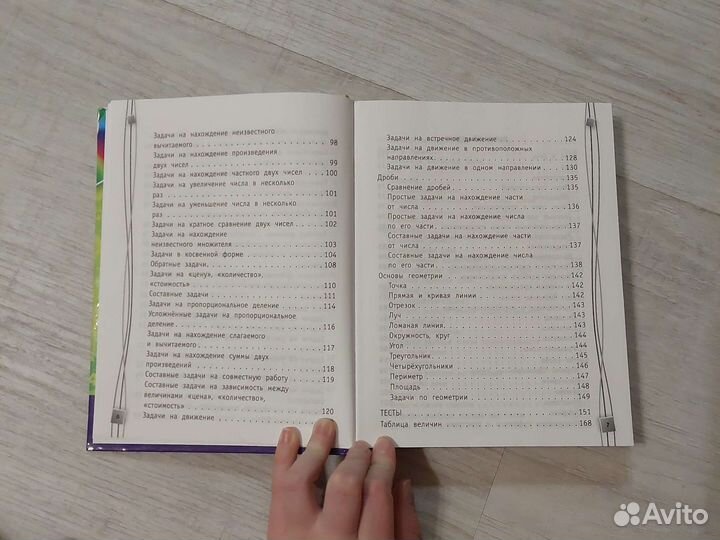 Задачи на нахождение неизвестного
вычитаемого . . . . . . . . . . . . . . . . . . . . 98
Задачи на нахождение произведения
двух чисел . . . . . . . . . . . . . . . . . . . . 99
Задачи на нахождение частного двух чисел . . . . 100
Задачи на увеличение числа в несколько
раз . . . . . . . . . . . . . . . . . . . . 101
Задачи на уменьшение числа в несколько
раз . . . . . . . . . . . . . . . . . . . . 101
Задачи на кратное сравнение двух чисел . . . . 102
Задачи на нахождение
неизвестного множителя . . . . . . . . . . . . 103
Задачи в косвенной форме . . . . . . . . . . . . 104
Обратные задачи. . . . . . . . . . . . . . . . 108
Задачи на «цену», «количество»,
«стоимость» . . . . . . . . . . . . . . . . 110
Составные задачи . . . . . . . . . . . . . . . . 111
Задачи на пропорциональное деление . . . . . . 114
Усложнённые задачи на пропорциональное
деление . . . . . . . . . . . . . . . . . . . . 116
Задачи на нахождение слагаемого
и вычитаемого . . . . . . . . . . . . . . . . 117
Задачи на нахождение суммы двух
произведений . . . . . . . . . . . . . . . . 118
Составные задачи на совместную работу . . . . 119
Составные задачи на зависимость между
величинами «цена», «количество»,
«стоимость» . . . . . . . . . . . . . . . . 120
Задачи на движение . . . . . . . . . . . .
6
Задачи на встречное движение . . . . . . . . 124
Задачи на движение в противоположных
направлениях. . . . . . . . . . . . . . . . 128
Задачи на движение в одном направлении . . . . 130
Дроби . . . . . . . . . . . . . . . . . . . . 135
Сравнение дробей . . . . . . . . . . . . . . 135
Простые задачи на нахождение части
от числа . . . . . . . . . . . . . . . . . . 136
Простые задачи на нахождение числа
по его части. . . . . . . . . . . . . . . . 137
Составные задачи на нахождение части
от числа . . . . . . . . . . . . . . . . . . 137
Составные задачи на нахождение числа
по его части . . . . . . . . . . . . . . . . 138
Основы геометрии . . . . . . . . . . . . . . 142
Точка . . . . . . . . . . . . . . . . . . . . 142
Прямая и кривая линии . . . . . . . . . . . . 142
Отрезок . . . . . . . . . . . . . . . . . . 143
Луч . . . . . . . . . . . . . . . . . . . . 143
Ломаная линия. . . . . . . . . . . . . . . . 143
Окружность, круг . . . . . . . . . . . . . . 144
Угол . . . . . . . . . . . . . . . . . . . . 144
Треугольник . . . . . . . . . . . . . . . . 145
Четырёхугольники . . . . . . . . . . . . . . 146
Периметр . . . . . . . . . . . . . . . . . . 147
Площадь . . . . . . . . . . . . . . . . . . 148
Задачи по геометрии . . . . . . . . . . . . 149
ТЕСТЫ . . . . . . . . . . . . . . . . . . . . 151
Таблица величин . . . . . . . . . . . . . . 168
7
Avito